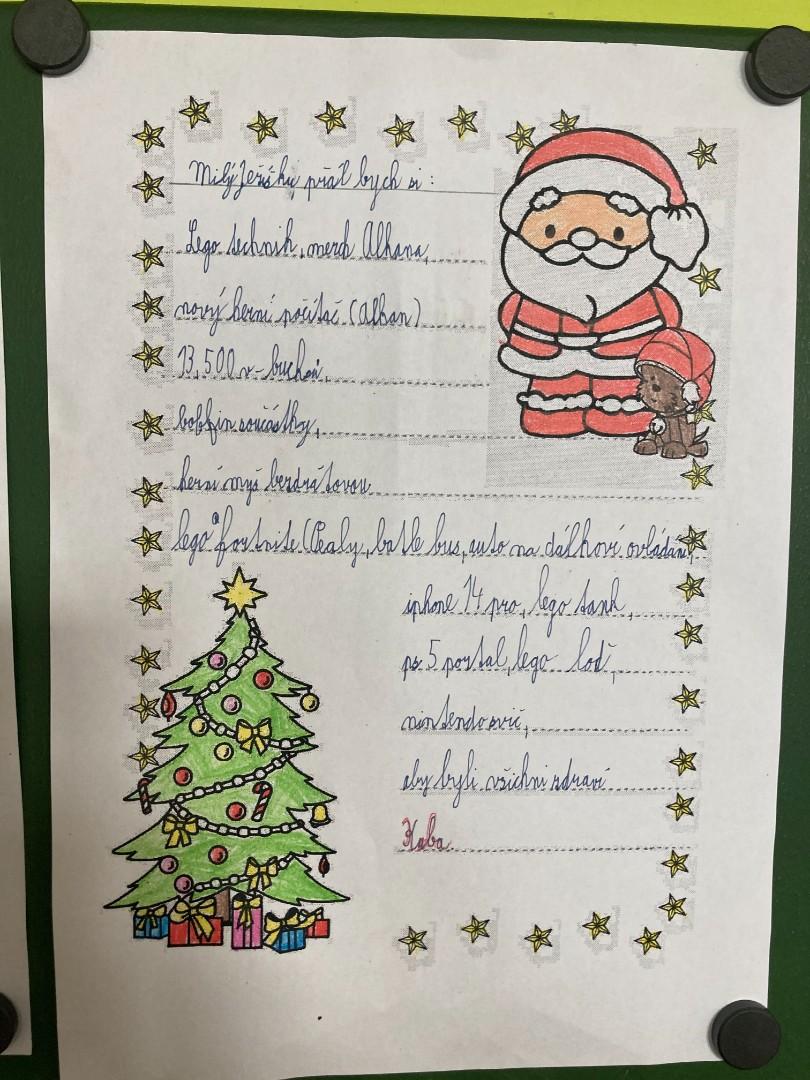 Milý Ježíšku, přál bych si :
Lego technik, merch Alkana,
nový herní počítač (Alkan)
13,500 v-buchsů,
boffin součástky,
herní myš bezdrátovou
lego fortnite (Pealy, batle bus, auto na dálkoví ovládání,
iphone 14 pro, lego tank,
ps 5 portal, lego loď,
nintendo svič,
aby byli všichni zdraví
Kuba